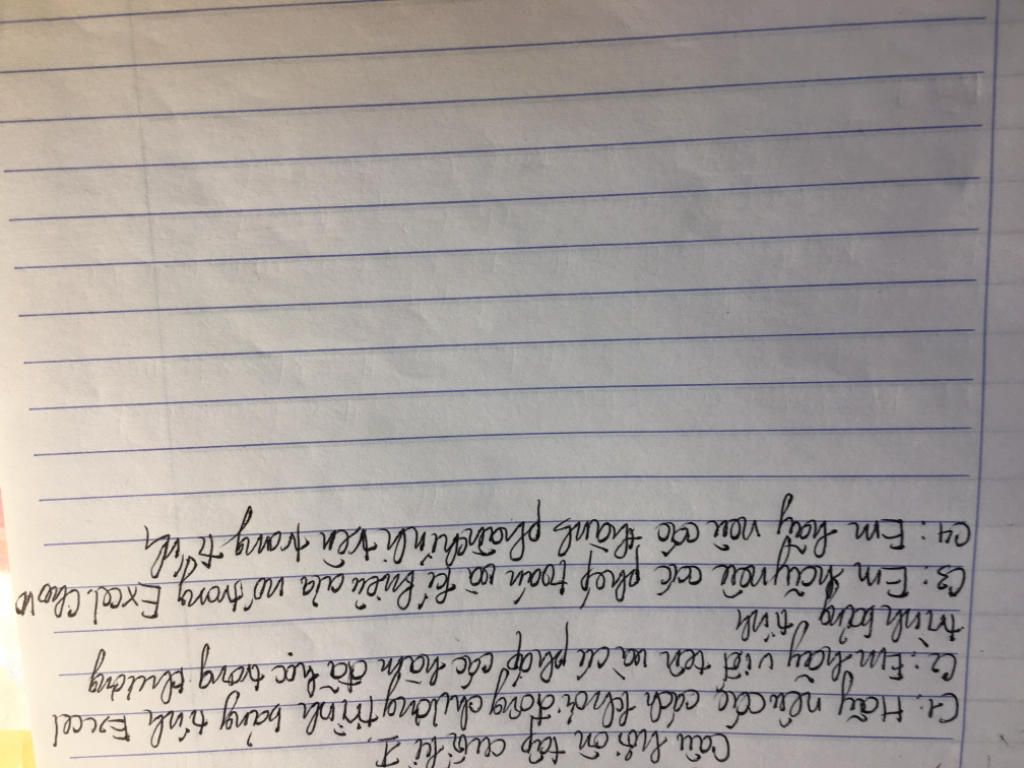 Câu hỏi ôn tập cuối kì I
C1: Hãy nêu các cách khởi động chương trình bảng tính Excel
C2: Em hãy viết tên và cú pháp các hàm đã học trong chương
trình bảng tính
C3: Em hãy nêu các phép toán và kí hiệu của nó trong Excel. Cho VD
C4: Em hãy nêu các thành phần chính trên trang tính